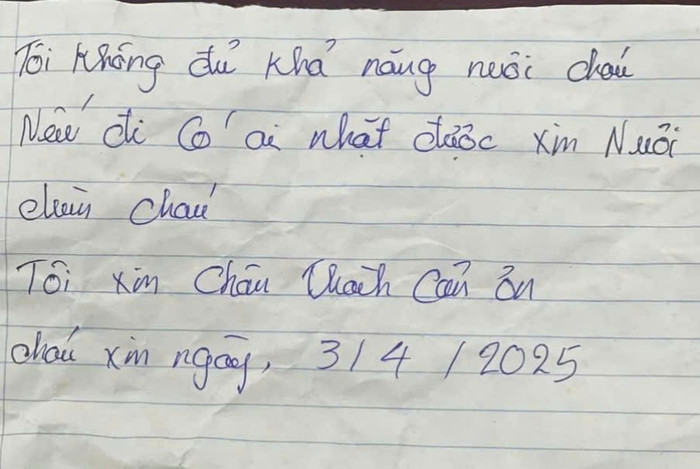 Tôi không đủ khả năng nuôi cháu
Nếu đi có ai nhặt được xin Nuôi
dùm cháu
Tôi xin chân thành cảm ơn
cháu xin ngày, 3/4/2025